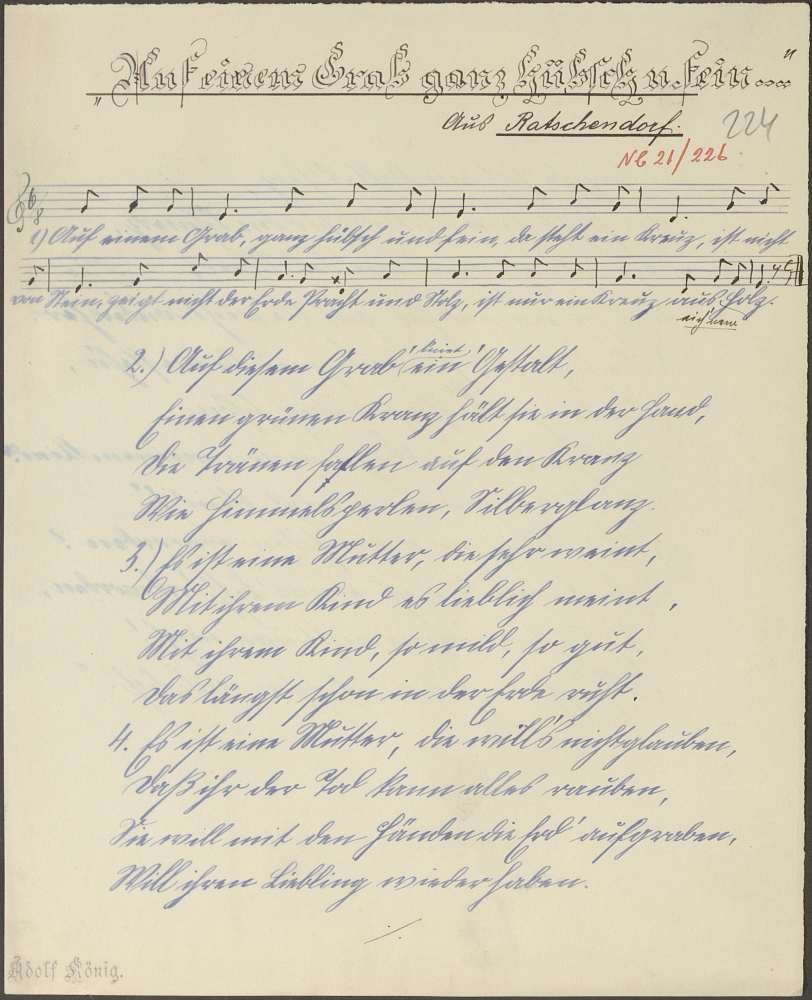 „Auf einem Grab ganz hübsch u. fein...."
Aus Ratschendorf.
224
NB 21/226
6/8
1) Auf einem Grab, ganz hübsch und fein, da steht ein Kreuz, ist nicht
von Stein, zeigt nicht der Erde Pracht und Stolz, ist nur ein Kreuz aus Holz.
2.) Auf diesem Grab kniet ein Gestalt,
Einen grünen Kranz hält sie in der Hand,
Die Tränen fallen auf den Kranz
Wie Himmelsperlen, Silberglanz.
3.) Es ist eine Mutter, die sehr weint,
Mit ihrem Kind es lieblich meint,
Mit ihrem Kind, so mild, so gut,
Das längst schon in der Erde ruht.
4. Es ist eine Mutter, die will's nicht glauben,
Daß ihr der Tod kann alles rauben,
Sie will mit den Händen die Erd' aufgraben,
Will ihren Liebling wieder haben.
Adolf König.